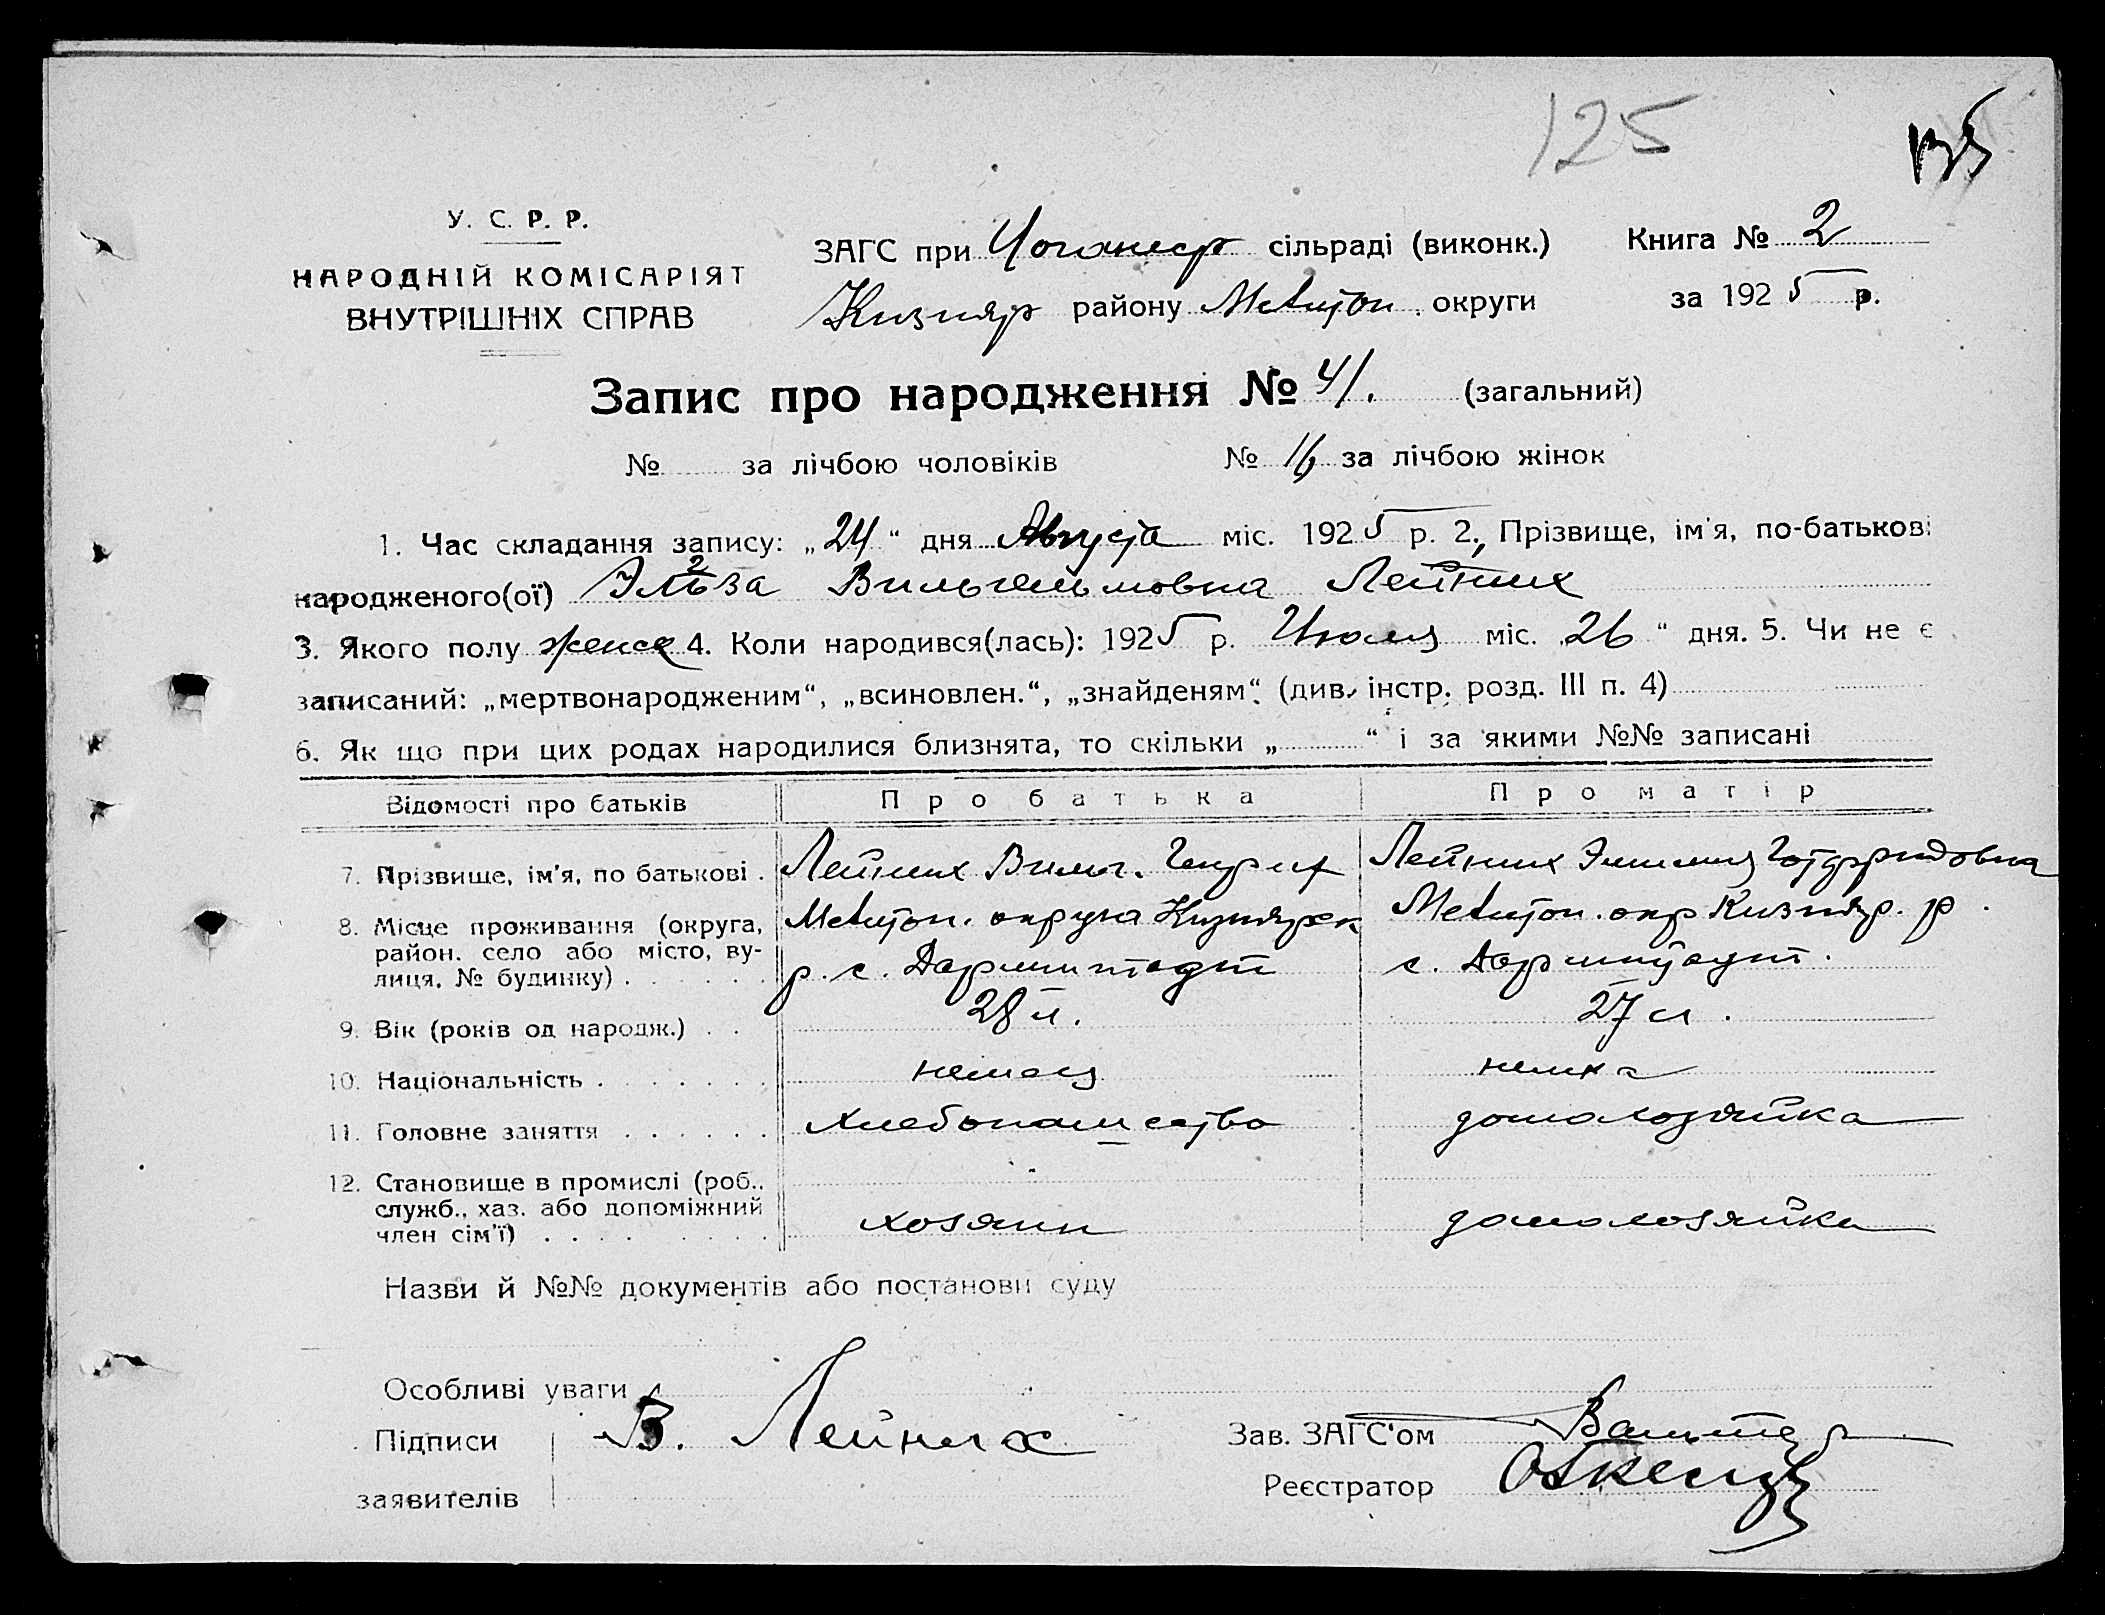 125
У. С. Р. Р.
НАРОДНІЙ КОМІСАРІЯТ
ВНУТРІШНІХ СПРАВ
ЗАГС при сільраді (виконк.) Книга № 2
Кизияр району Мелитоп. округи за 1925 р.
Запис про народження № 41. (загальний)
№ за лічбою чоловіків № 16 за лічбою жінок
1. Час складання запису: „24" дня Августа міс. 1925 р. 2. Прізвище, ім'я, по-батькові
народженого(ої) Эльза Вильгельмовна Лейних
3. Якого полу женск 4. Коли народився(лась): 1925 р. Июля міс. 26 " дня. 5. Чи не є
записаний: „мертвонародженим", „всиновлен.", „знайденям". (див. інстр. розд. III п. 4)
6. Як що при цих родах народилися близнята, то скільки „ " і за якими №№ записані
Відомості про батьків Про батька Про матір
7. Прізвище, ім'я, по батькові . Лейних Вильг. Генрих Лейних Эмилия Готфридовна
8. Місце проживання (округа, район. село або місто, вулиця, № будинку) . Мелитоп. округа Кизиярск р. с. Дармштадт Мелитоп. окр Кизияр. р. с. Дармштадт.
9. Вік (років од народж.) . . 28 л. 27 л.
10. Національність . немец немка
11. Головне заняття . хлебопашество домохозяйка
12. Становище в промислі (роб., служб., хаз. або допоміжний член сім'ї) . хозяин домохозяйка
Назви й №№ документів або постанови суду
Особливі уваги
Підписи В. Лейних Зав. ЗАГС'ом Вальтер
заявителів Реєстратор